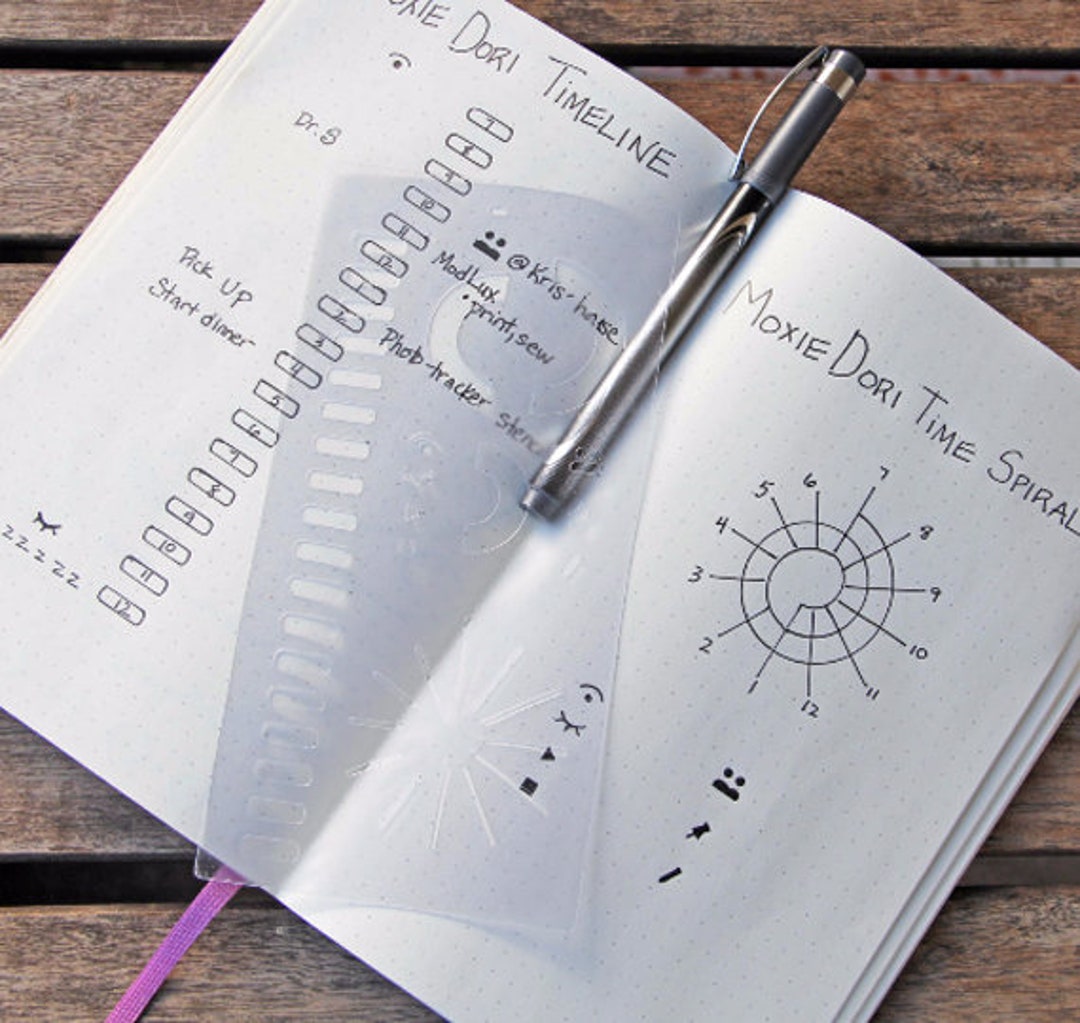 OXIE DORI TIMELINE
Dr. 8
7
8
9
10
11
12
1
2
3
4
5
6
7
8
9
10
11
12
@ Kris' house
ModLux
• print, sew
Pick UP
Start dinner
Photo-tracker stencil
z z z z z
MOXIE DORI TIME SPIRAL
7
8
9
10
11
12
1
2
3
4
5
6